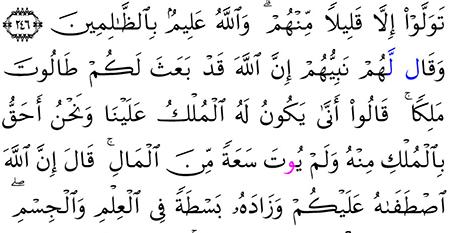 تَوَلَّوۡاْ إِلَّا قَلِيلٗا مِّنۡهُمۡۚ وَٱللَّهُ عَلِيمُۢ بِٱلظَّٰلِمِينَ ٢٤٦
وَقَال لَّهُمۡ نَبِيُّهُمۡ إِنَّ ٱللَّهَ قَدۡ بَعَثَ لَكُمۡ طَالُوتَ
مَلِكٗاۚ قَالُوٓاْ أَنَّىٰ يَكُونُ لَهُ ٱلۡمُلۡكُ عَلَيۡنَا وَنَحۡنُ أَحَقُّ
بِٱلۡمُلۡكِ مِنۡهُ وَلَمۡ يُوتَ سَعَةٗ مِّنَ ٱلۡمَالِۚ قَالَ إِنَّ ٱللَّهَ
ٱصۡطَفَىٰهُ عَلَيۡكُمۡ وَزَادَهُۥ بَسۡطَةٗ فِي ٱلۡعِلۡمِ وَٱلۡجِسۡمِۖ